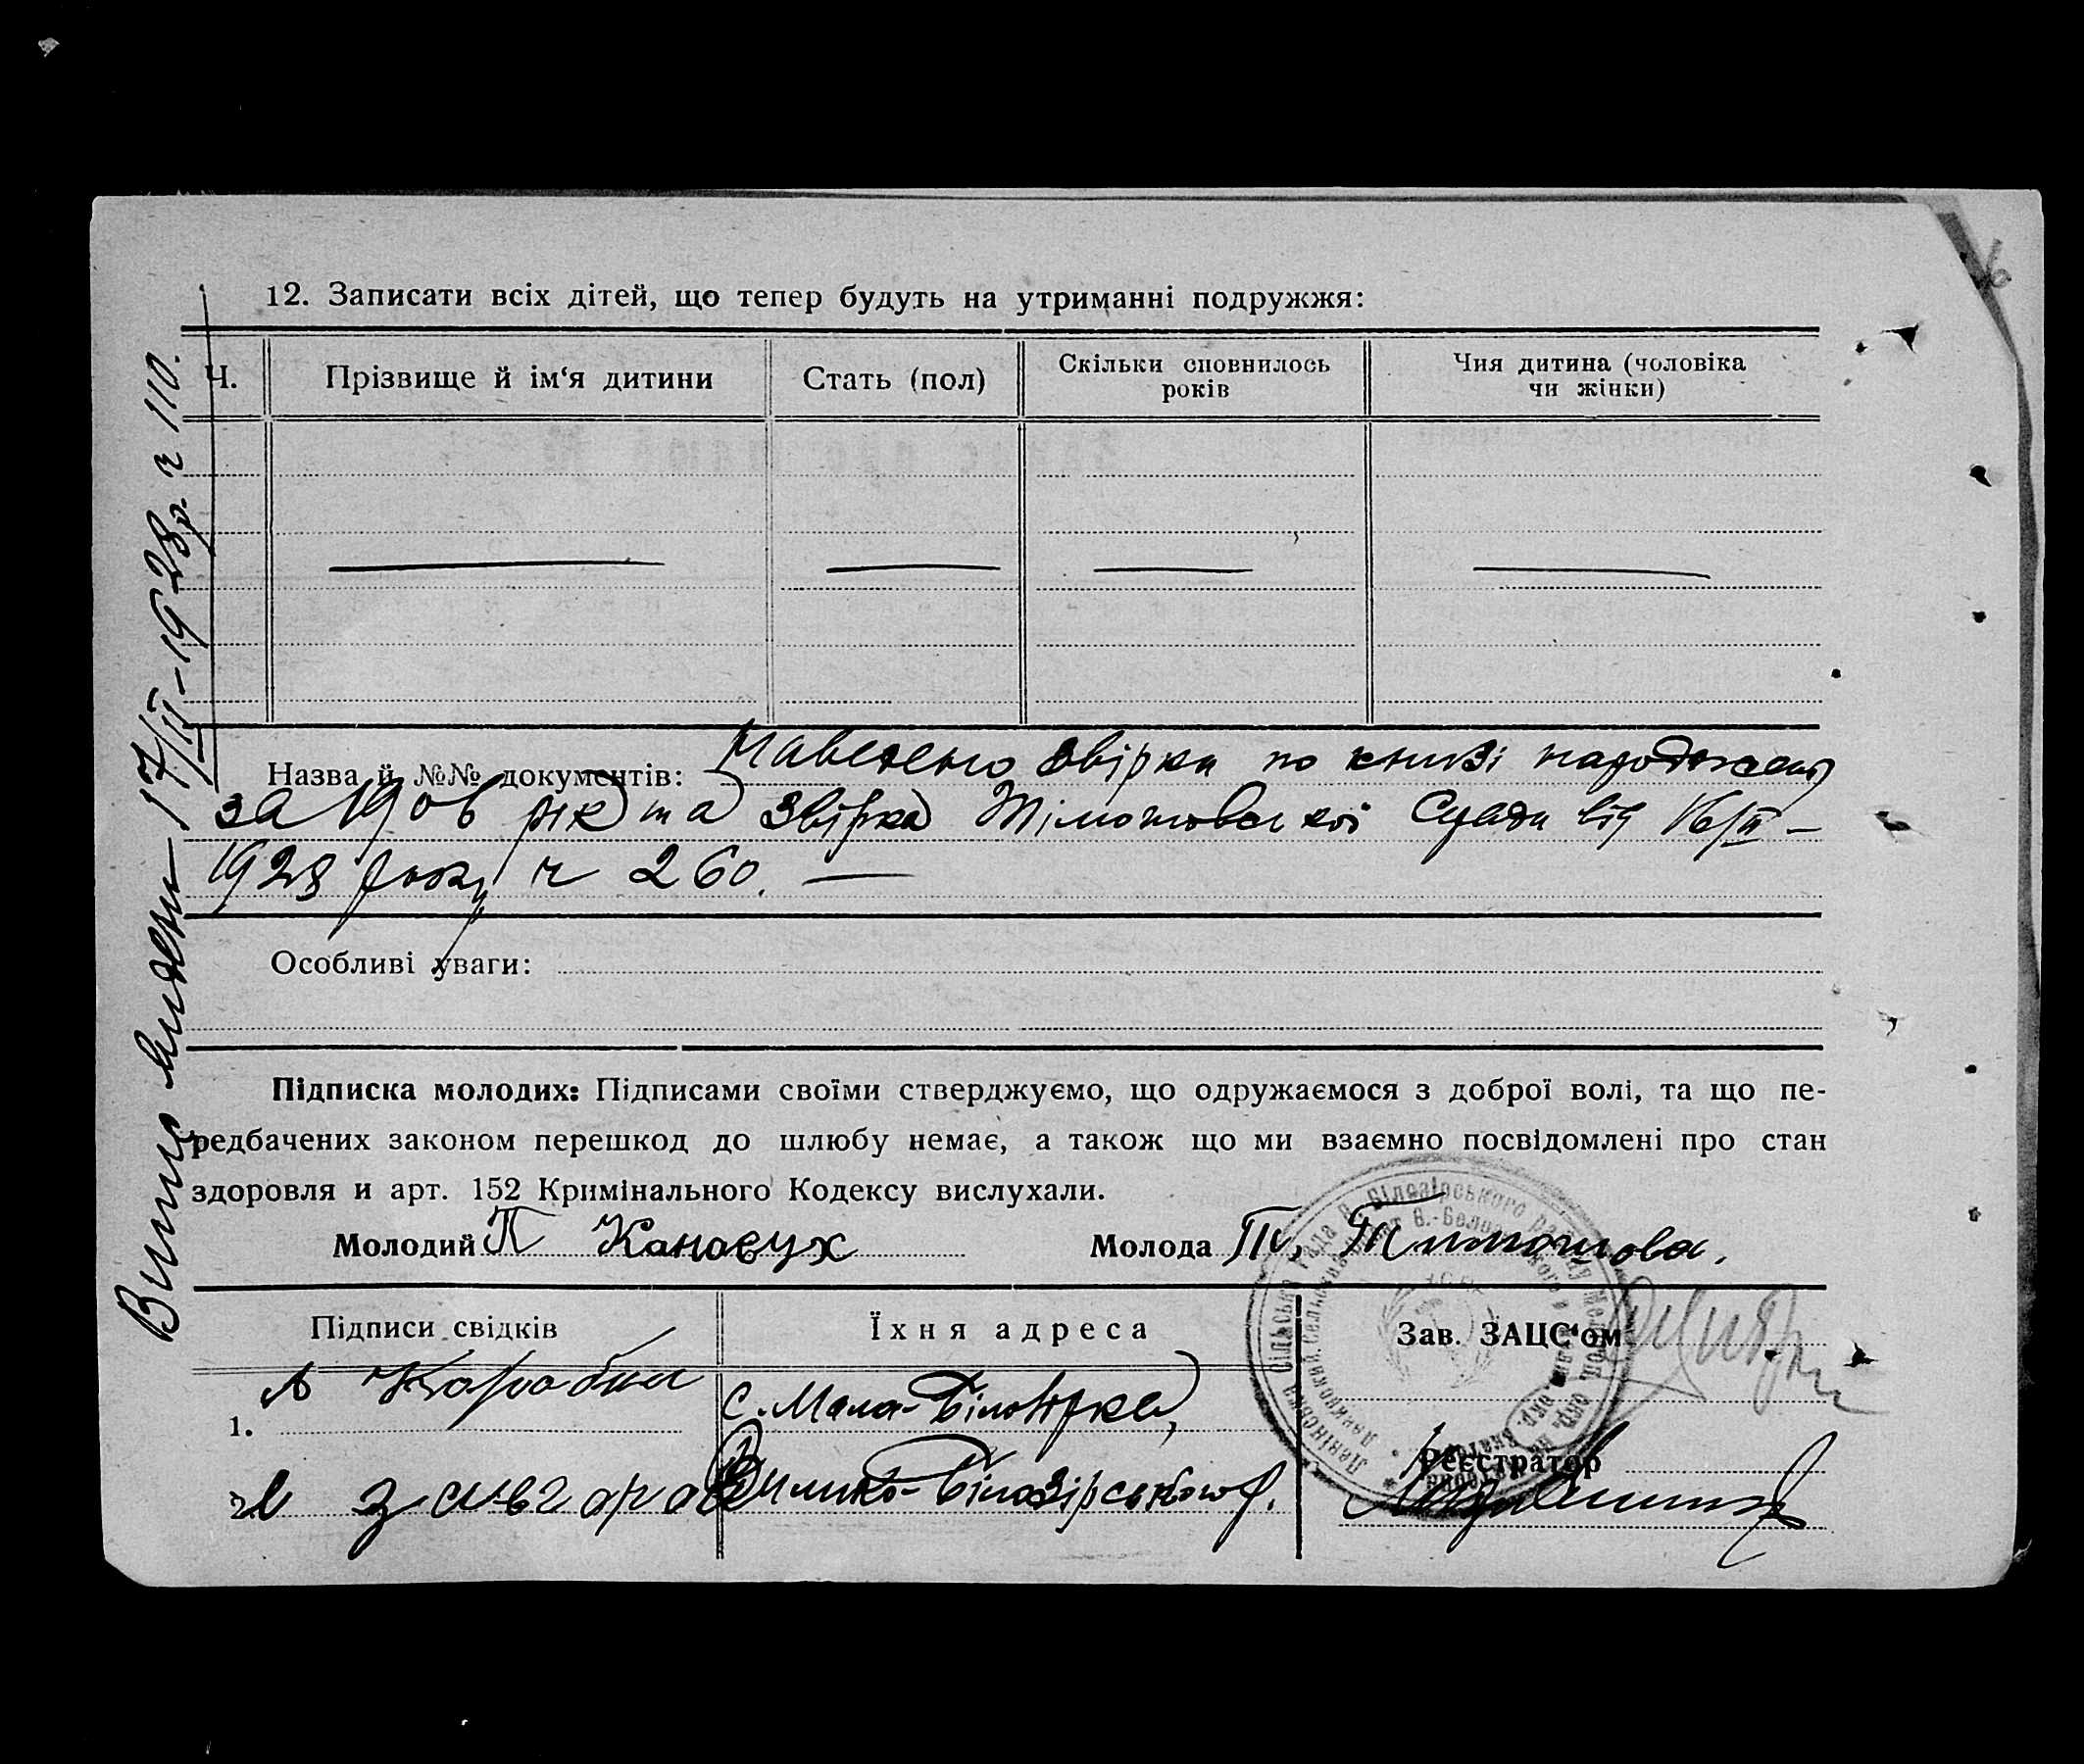 12. Записати всіх дітей, що тепер будуть на утриманні подружжя:
Ч.
Прізвище й ім‘я дитини
Стать (пол)
Скільки сповнилось
років
Чия дитина (чоловіка
чи жінки)
17/II-1928р. ч 110.
Назва й №№ документів: звірка по книзі
за 1906 рік та звірка від 16/II –
1928 року ч 260. —
Особливі уваги:
Підписка молодих: Підписами своїми стверджуємо, що одружаємося з доброї волі, та що пе-
редбачених законом перешкод до шлюбу немає, а також що ми взаємно посвідомлені про стан
здоровля и арт. 152 Кримінального Кодексу вислухали.
Молодий П Канавчух
Молода Т. Тимошова.
Підписи свідків
Їхня адреса
Зав. ЗАЦС‘ом
1.
с. Мала-Білозірка,
2.
Велико-Білозірського р.
Реєстратор